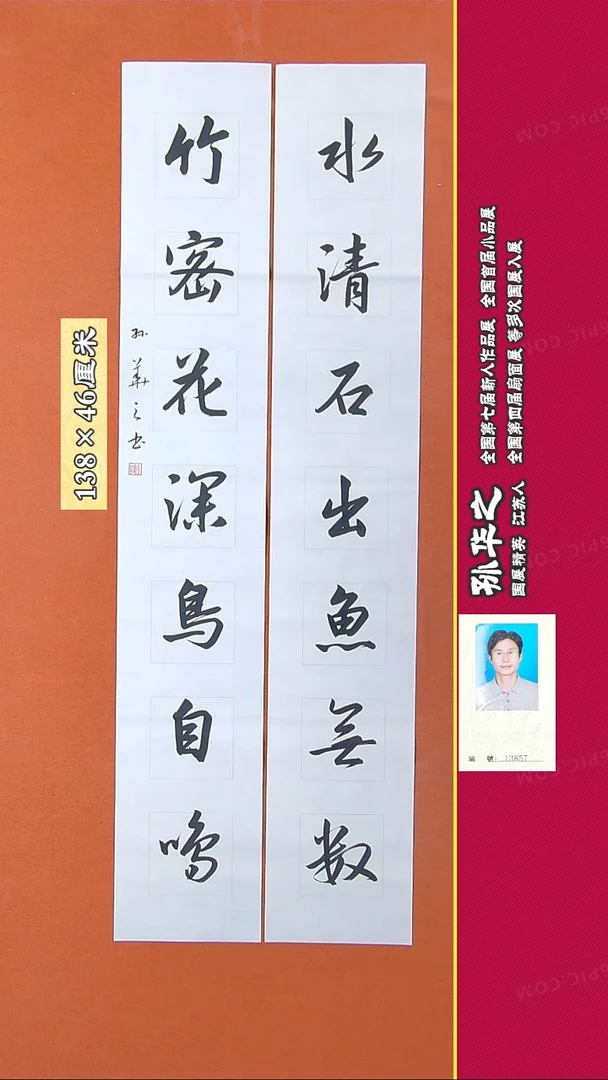 水清石出魚無数
竹密花深鳥自鳴
孙華之书
138×46厘米
孙华之
國展精英 江苏人
全国第七届新人作品展 全国首届小品展
全国第四届扇面展 等多次國展入展
编 號: 13857